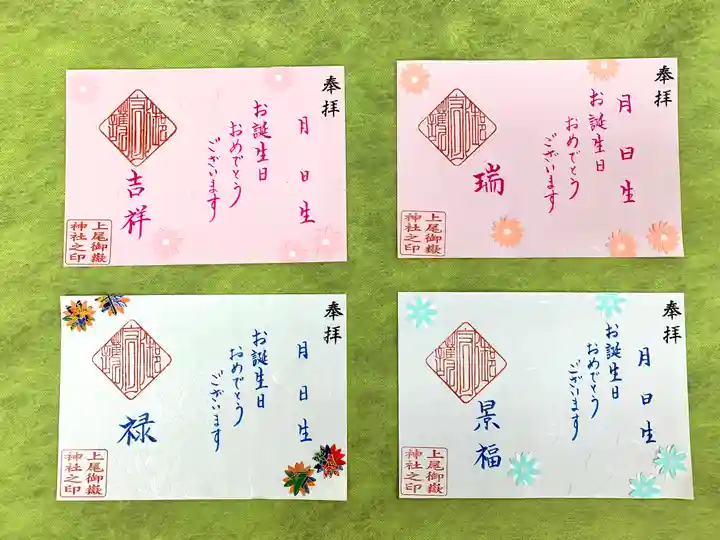 奉拝
月 日 生
お誕生日
おめでとう
ございます
吉祥
上尾御嶽
神社之印
奉拝
月 日 生
お誕生日
おめでとう
ございます
瑞
上尾御嶽
神社之印
奉拝
月 日 生
お誕生日
おめでとう
ございます
禄
上尾御嶽
神社之印
奉拝
月 日 生
お誕生日
おめでとう
ございます
景福
上尾御嶽
神社之印